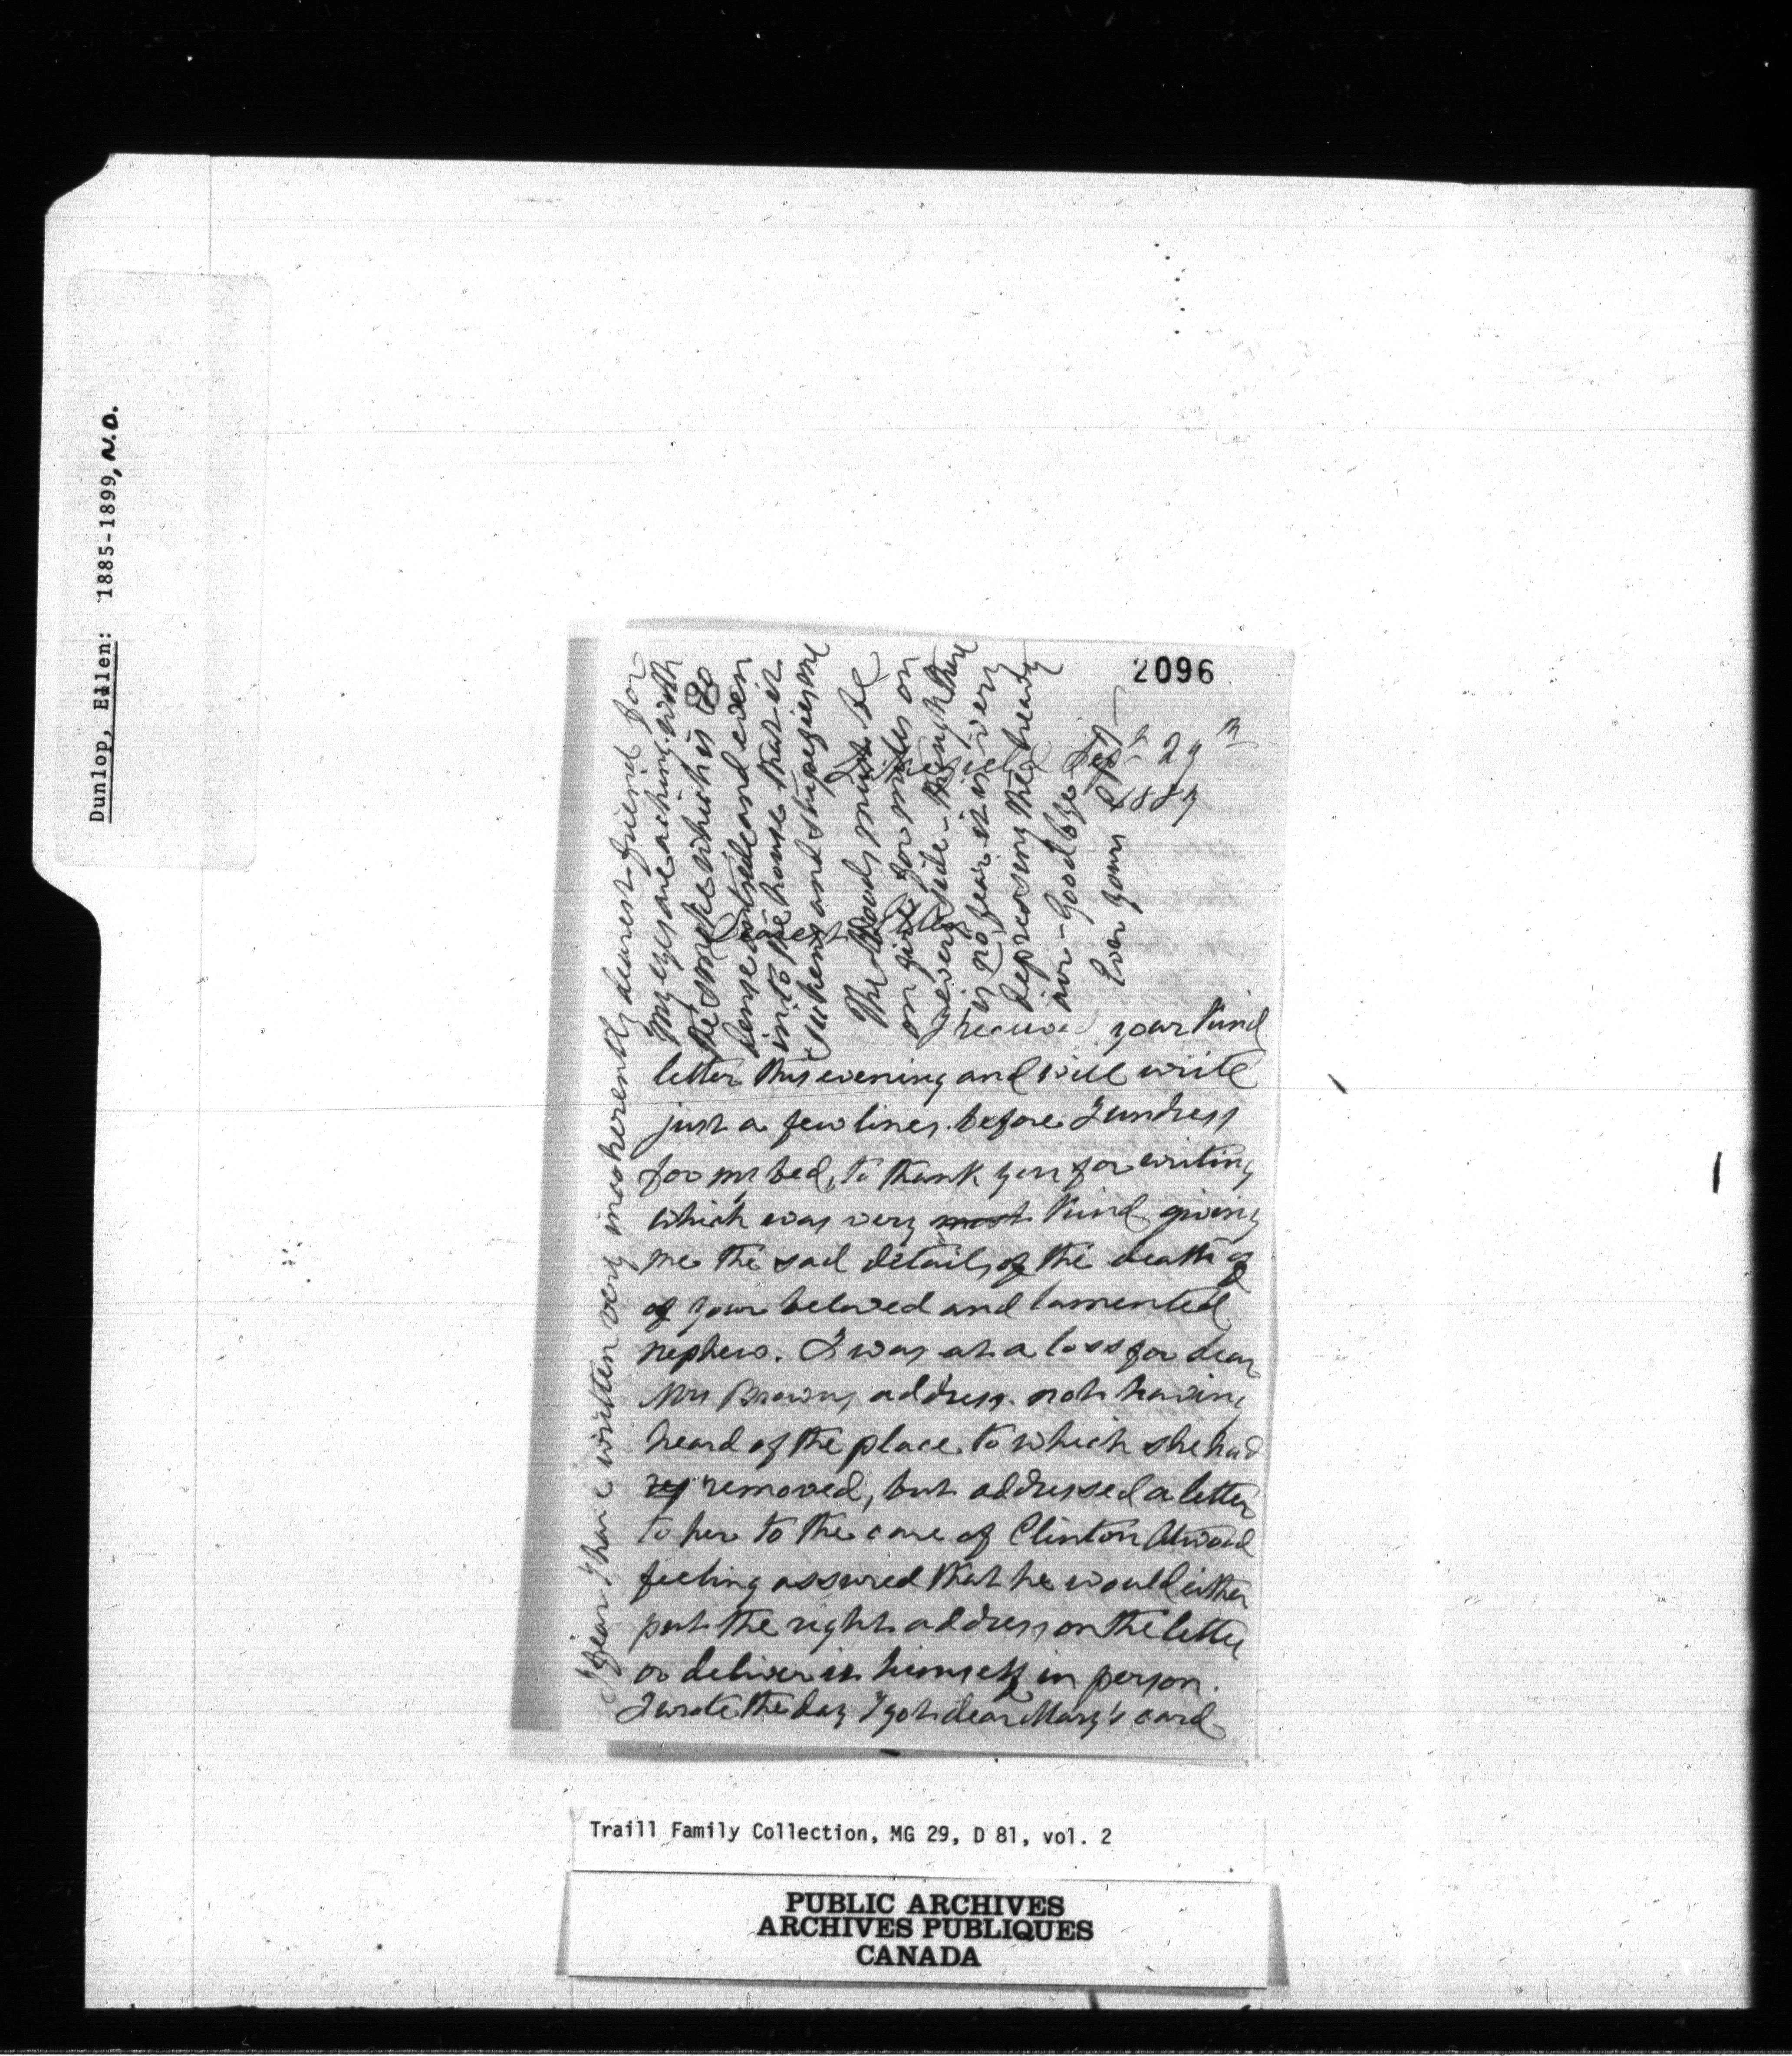 Dunlop, Ellen: 1885-1899, N.D.
2096
Lakefield Sept 29th
1887
Dearest Ellen
I received your kind
letter this evening and will write
just a few lines before I undress
for my bed, to thank you for writing
which was very most kind giving
me the sad details of the death of
of your beloved and lamented
nephew. I was at a loss for dear
Mrs Browns address not having
heard of the place to which she had
removed, but addressed a letter
to her to the care of Clinton Atwood
feeling assured that he would either
put the right address on the letter
or deliver it himself in person.
I wrote the day I got dear Mary's card
I fear I have written very incoherently dearest friend for
My eyes are aching with
the smoke which is so
dense outside and even
into the house that it
sickens and stupefies one
The Woods must be
on fire for miles on
every side - though there
is no fear it is very
depressing the heavy
air - Goodbye
Ever yours
Traill Family Collection, MG 29, D 81, vol. 2
PUBLIC ARCHIVES
ARCHIVES PUBLIQUES
CANADA